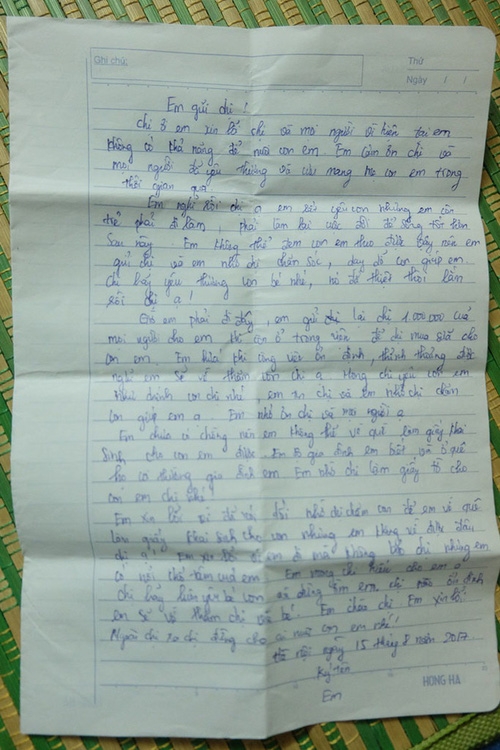 Ghi chúc
Thứ
Ngày / /
Em gửi chị !
Chị ơi em xin lỗi chị và mọi người vì hiện tại em
không có khả năng để nuôi con em. Em cảm ơn chị và
mọi người đã yêu thương và cưu mang mẹ con em trong
thời gian qua
Em nghĩ rồi chị ạ em rất yêu con nhưng em còn
trẻ phải đi làm, phải làm lại cuộc đời để sống tốt hơn
sau này. Em không thể đem con em theo được nên em
gửi chị và em nhờ chị chăm sóc, dạy dỗ con giúp em.
Chị hãy yêu thương con bé nhé, nó đã thiệt thòi lắm
rồi chị ạ!
Giờ em phải đi đây, em gửi chị lại 1.000.000 của
mọi người cho em khi em ở trong viện để chị mua sữa cho
con em. Em hứa khi công việc ổn định, thỉnh thoảng được
nghỉ em sẽ về thăm con chị ạ. Mong chị yêu con em
như chính con chị nhé, em tin chị và em nhờ chị chăm
con giúp em ạ. Em nhớ ơn chị và mọi người ạ
Em chưa có chồng nên em không thể về quê làm giấy khai
sinh cho con em được. Em gia đình em biết và ở quê
họ em. Em nhờ chị làm giấy tờ cho
con em chị nhé!
Em xin lỗi vì đã nhờ chị chăm con để em về quê
làm giấy khai sinh cho con nhưng em không về được đâu
chị ạ! Em xin lỗi chị nhưng em
có nỗi khổ tâm của em. Em mong chị hiểu cho em ạ
Chị hãy yêu bé con em, ổn định
em sẽ về thăm chị và bé. Em chào chị. Em xin lỗi.
Người chị đừng cho ai nuôi con em nhé!
Hà Nội ngày 15 tháng 8 năm 2017
Ký tên
Em
HONG HA